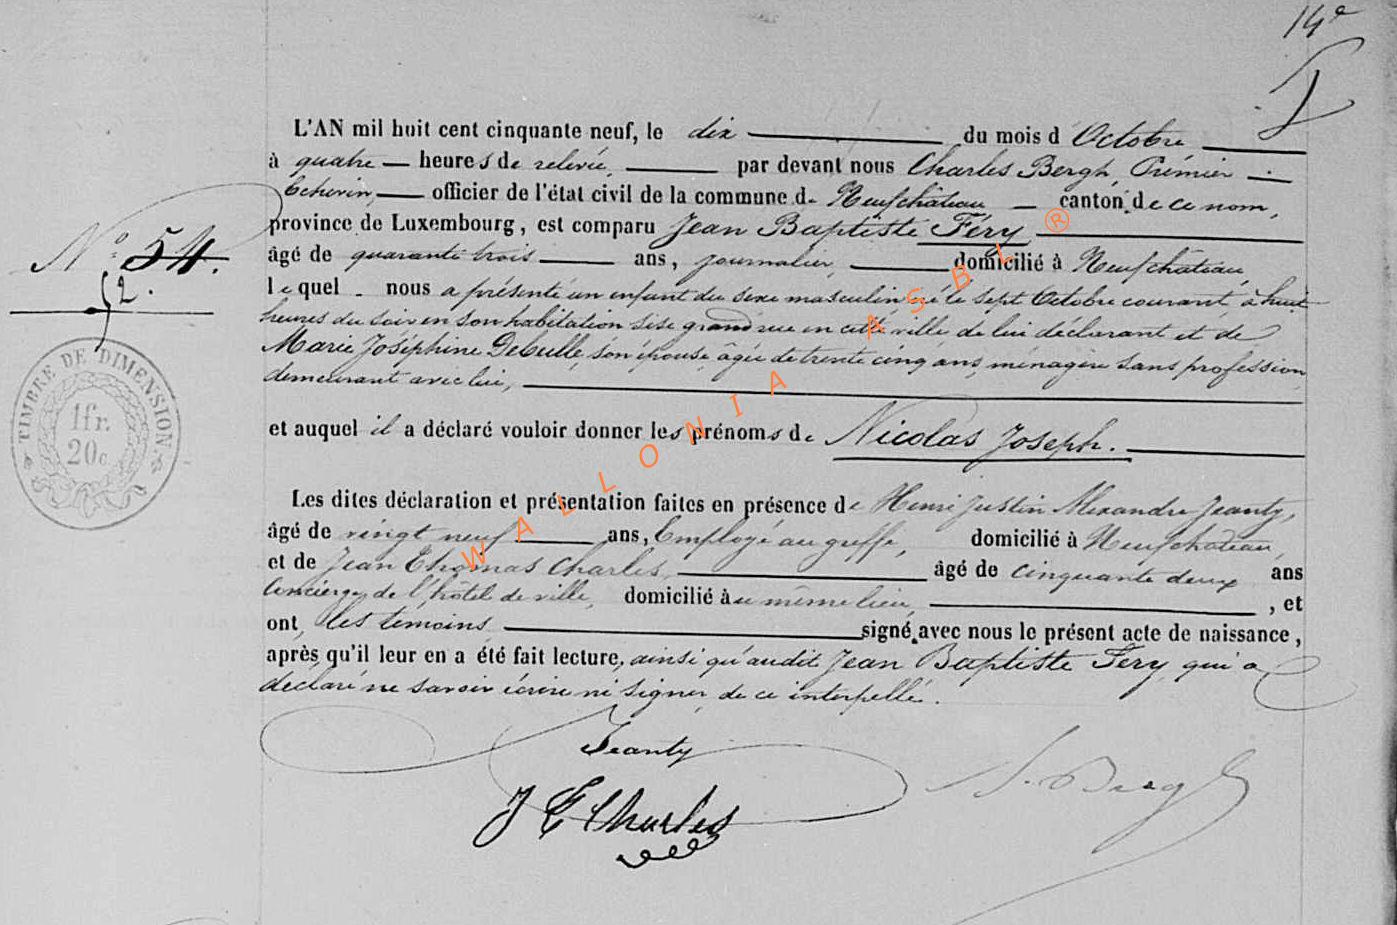 14e
L'AN mil huit cent cinquante neuf, le dix du mois d'Octobre
à quatre heures de relevée, par devant nous Charles Bergh, Prémier
Echevin, officier de l'état civil de la commune de Neufchâteau canton de ce nom,
province de Luxembourg, est comparu Jean Baptiste Féry
N° 54.
52.
âgé de quarante trois ans, journalier, domicilié à Neufchâteau,
lequel nous a présenté un enfant du sexe masculin né le sept Octobre courant, à huit
heures du soir en son habitation sise grand rue en cette ville de lui déclarant et de
Marie Joséphine son épouse, âgée de trente cinq ans, ménagère sans profession
demeurant avec lui,
et auquel il a déclaré vouloir donner les prénoms de Nicolas Joseph.
Les dites déclaration et présentation faites en présence de Henri Justin Alexandre Jeanty,
âgé de vingt neuf ans, Employé au greffe, domicilié à Neufchateau,
et de Jean Thomas Charles, âgé de cinquante deux ans
Concierge de l'hôtel de ville, domicilié au même lieu, , et
ont, les témoins signé avec nous le présent acte de naissance,
après qu'il leur en a été fait lecture, ainsi qu'audit Jean Baptiste Fery qui a
déclaré ne savoir écrire ni signer, de ce interpellé.
Jeanty
J T Charles
TIMBRE DE DIMENSION
1fr.
20c
WALLONIA ASBL ®